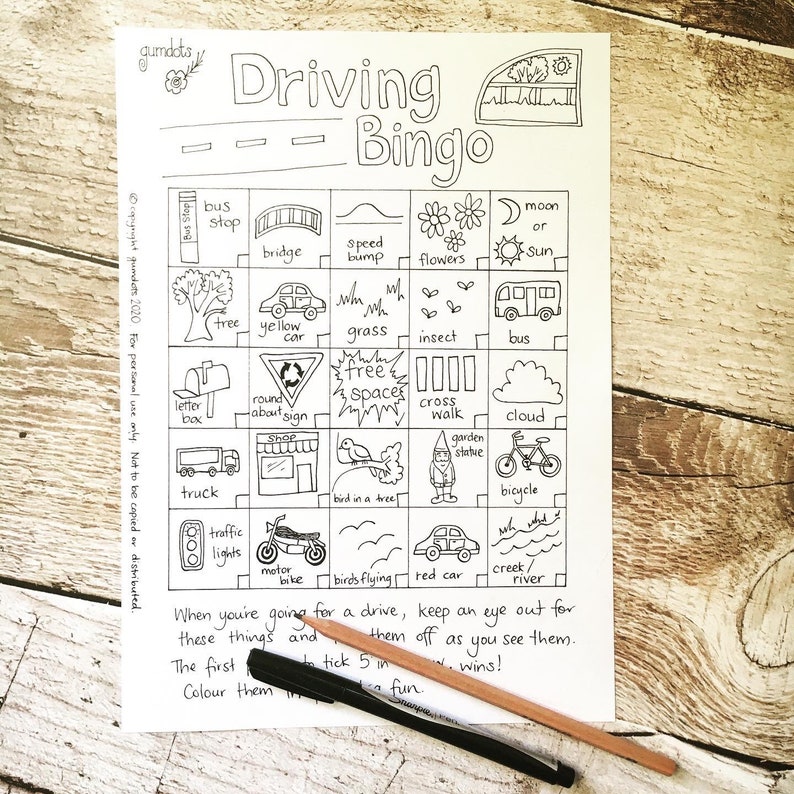 gumdots
Driving
Bingo
© copyright gumdots 2020. For personal use only. Not to be copied or distributed.
Bus Stop
bus
stop
bridge
speed
bump
flowers
moon
or
sun
tree
yellow
car
grass
insect
bus
letter
box
round
about sign
free
space
cross
walk
cloud
truck
Shop
bird in a tree
garden
statue
bicycle
traffic
lights
motor
bike
birds flying
red car
creek/
river
When you're going for a drive, keep an eye out for
these things and them off as you see them.
The first to tick 5 in wins!
Colour them fun.
Sharpie Pen